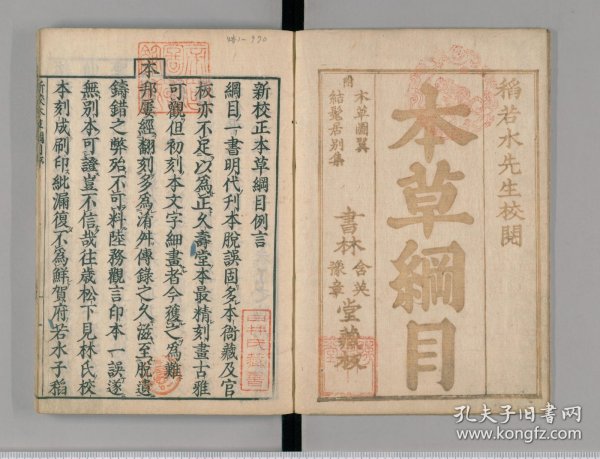 稻若水先生校閱
本草綱目
附
本草圖翼
結髦居別集
書林
含英
豫章
堂藏板
新校正本草綱目例言
綱目一書明代刊本脫誤固多本衙藏及官
板亦不足以爲正久壽堂本最精刻畫古雅
可觀但初刻本文字細畫者今獲之爲難
本
邦屢經翻刻多爲淆舛傳錄之久滋至脫遺
鑄錯之弊殆不可料陸務觀言印本一誤遂
無別本可證豈不信哉往歲松下見林氏校
本刻成刷印紕漏復不爲鮮賀府若水子稻
孔夫子旧书网
www.kongfz.com